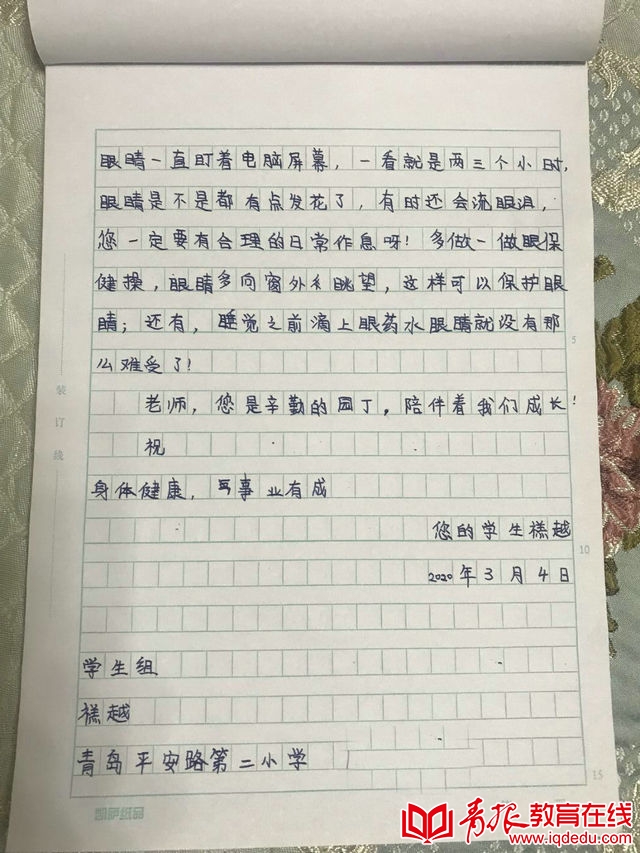 眼睛一直盯着电脑屏幕，一看就是两三个小时，
眼睛是不是都有点发花了，有时还会流眼泪，
您一定要有合理的日常作息呀！多做一做眼保
健操，眼睛多向窗外眺望，这样可以保护眼
睛；还有，睡觉之前滴上眼药水眼睛就没有那
么难受了！
老师，您是辛勤的园丁。陪伴着我们成长！
祝
身体健康，事业有成
您的学生禚越
2020年3月4日
学生组
禚越
青岛平安路第二小学
装订线
5
10
15
青报教育在线
www.iqdedu.com